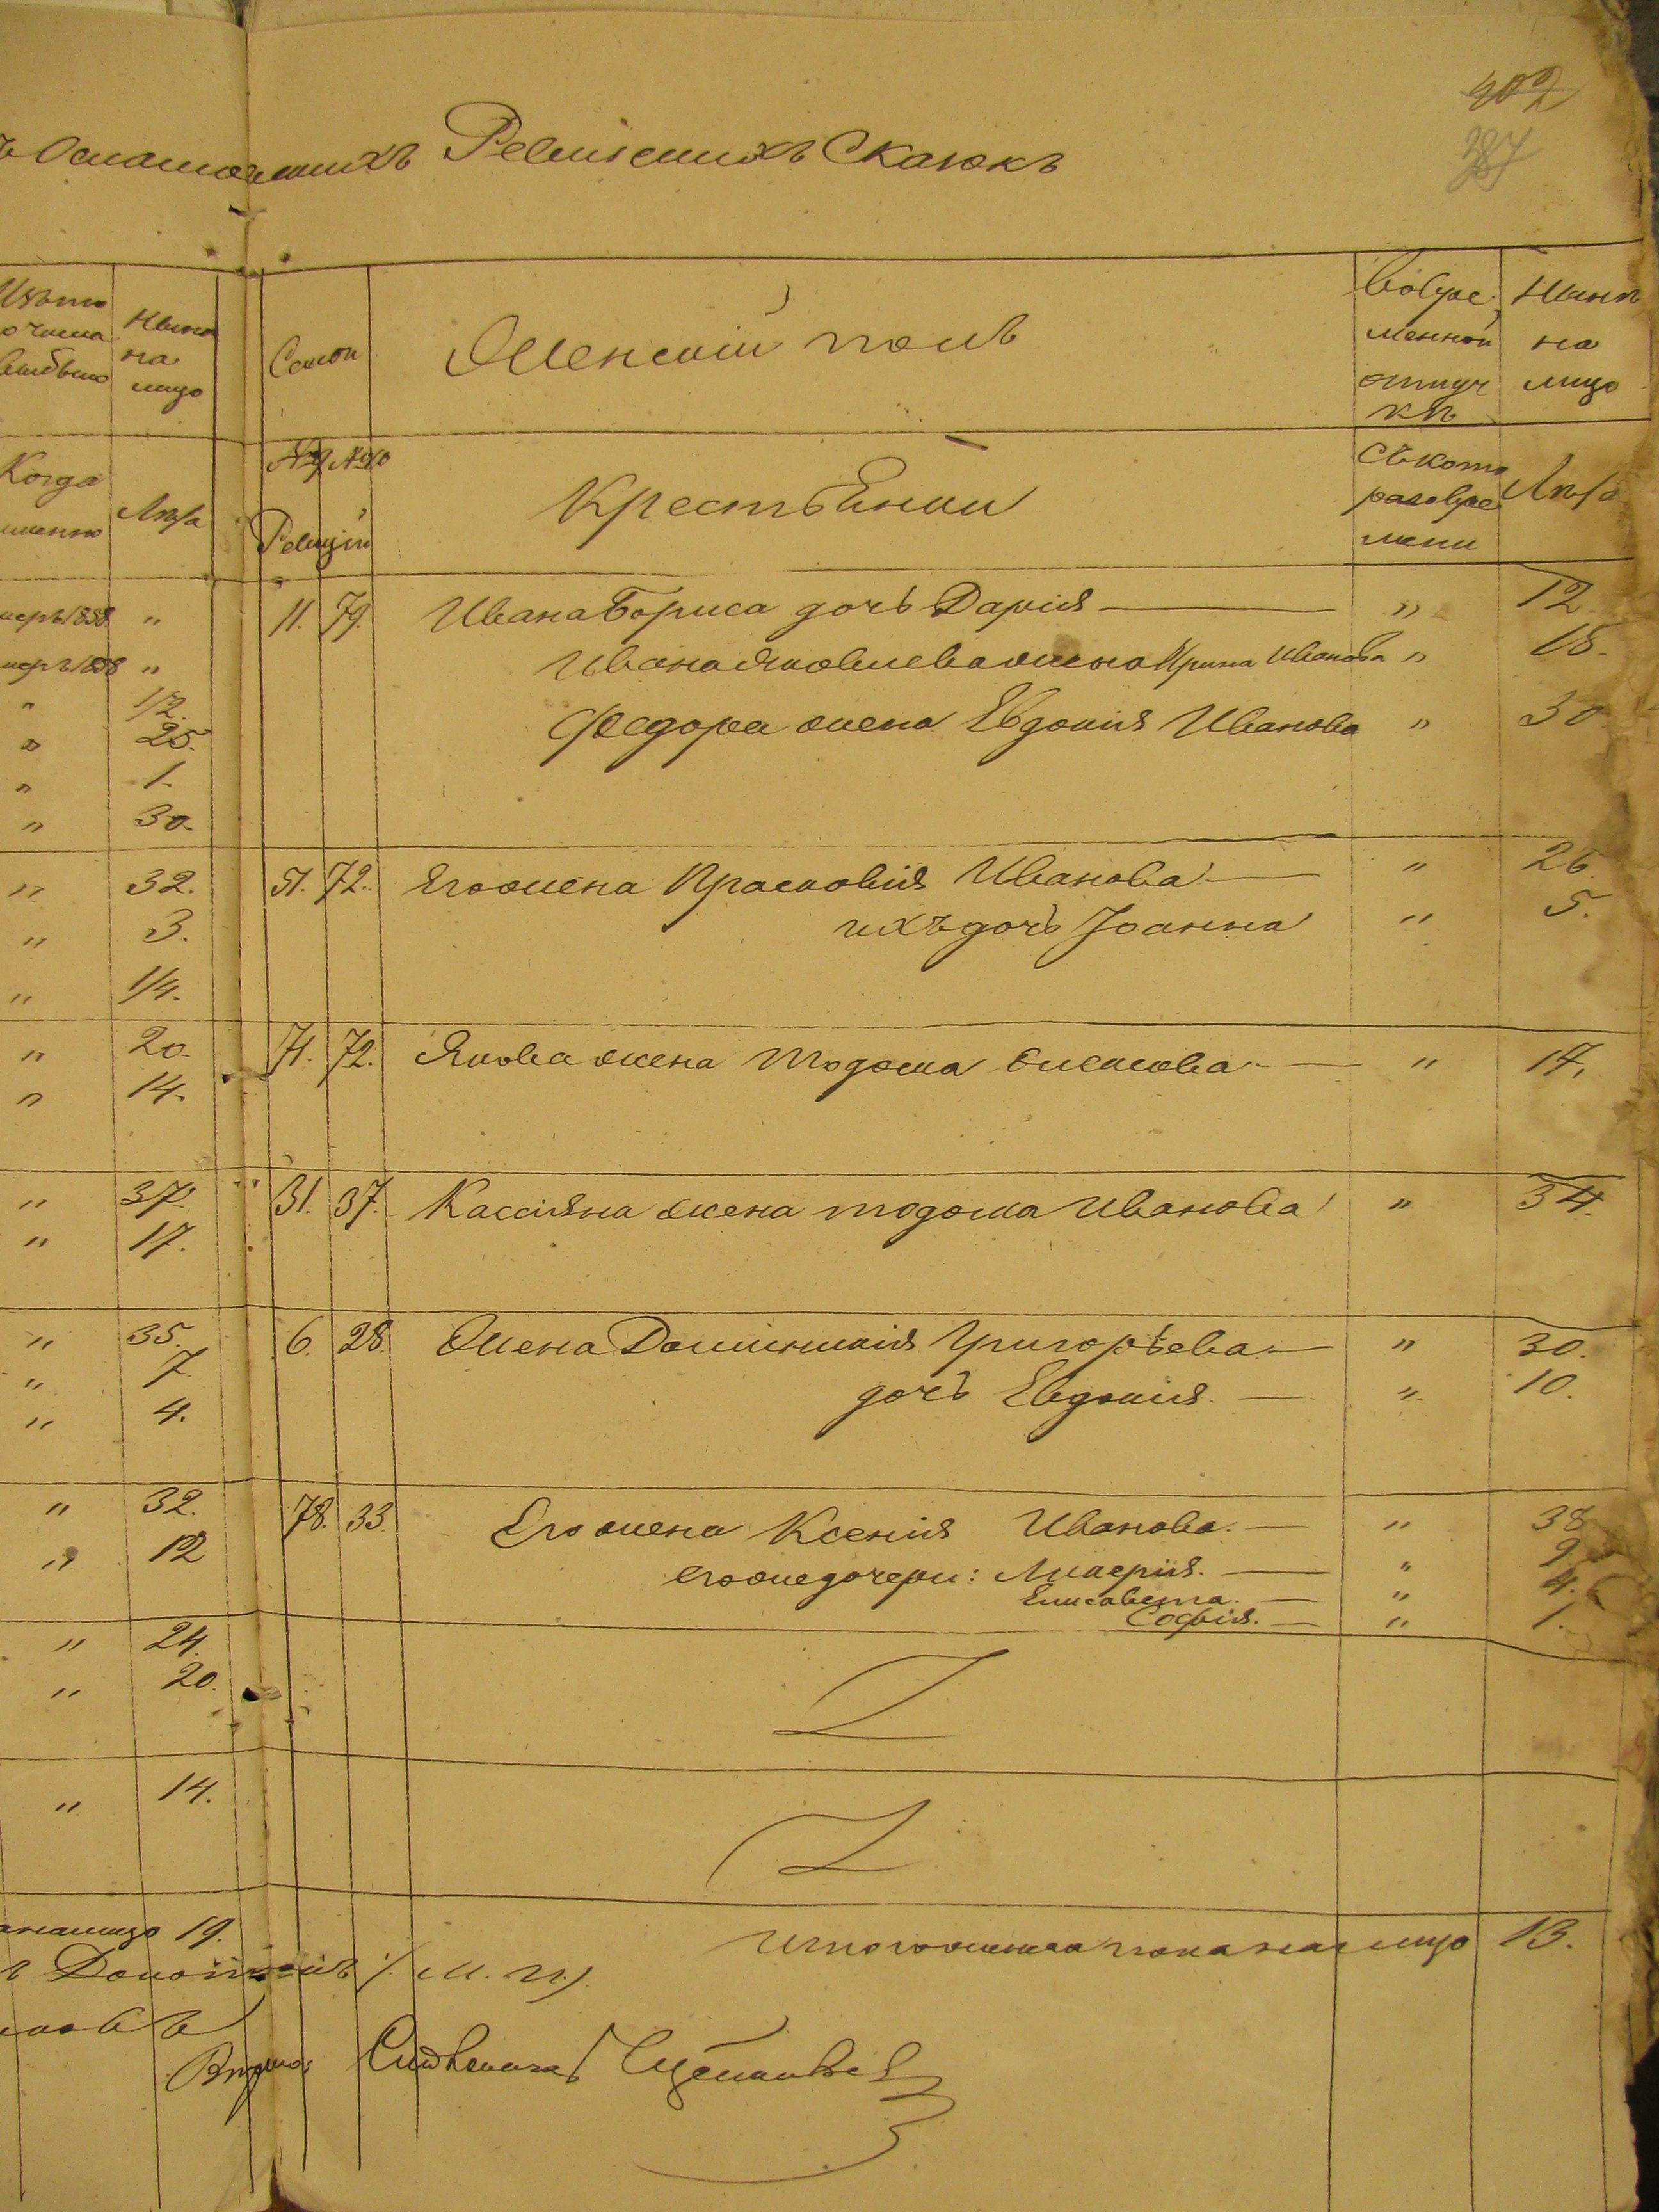 402
387
Ревизскихъ Сказокъ
Изъ то
Ныне
на
лицо
Семьи
Женскій полъ
Во вре
менной
отлуч
кѣ
Нынѣ
на
лицо
Когда
Лѣта
№9 №10
Ревизіи
Крестьянки
Съ кото
раго вре
мени
Лѣта
меръ 1858 "
11. 79. Ивана Бориса дочь Дарія — " 12.
меръ 1858 "
Ивана Яковлева жена Ирина Иванова " 18.
" 1/2.
Федора жена Евдокія Иванова " 30
" 25.
" 1.
" 30.
" 32. 51. 72. Его жена Прасковія Иванова — " 26.
" 3. ихъ дочь Іоанна " 5.
" 1/4.
" 20. 71. 72. Якова жена Тодока — " 17.
" 14.
" 37. 31. 37. Кассіяна жена Тодока Иванова " 34.
" 17.
" 35. 6. 28. Жена Доминикія Григорьева — " 30.
" 7. дочь Евдокія. — " 10.
" 4.
" 32. 78. 33. Его жена Ксенія Иванова. — " 38
" 12 его же дочери: Ликерія. — " 9.
Елисавета. — " 4.
Софія. — " 1.
" 24.
" 20.
" 14.
на лицо 19.
Итого женска пола на лицо 13.
/: М. П. :/